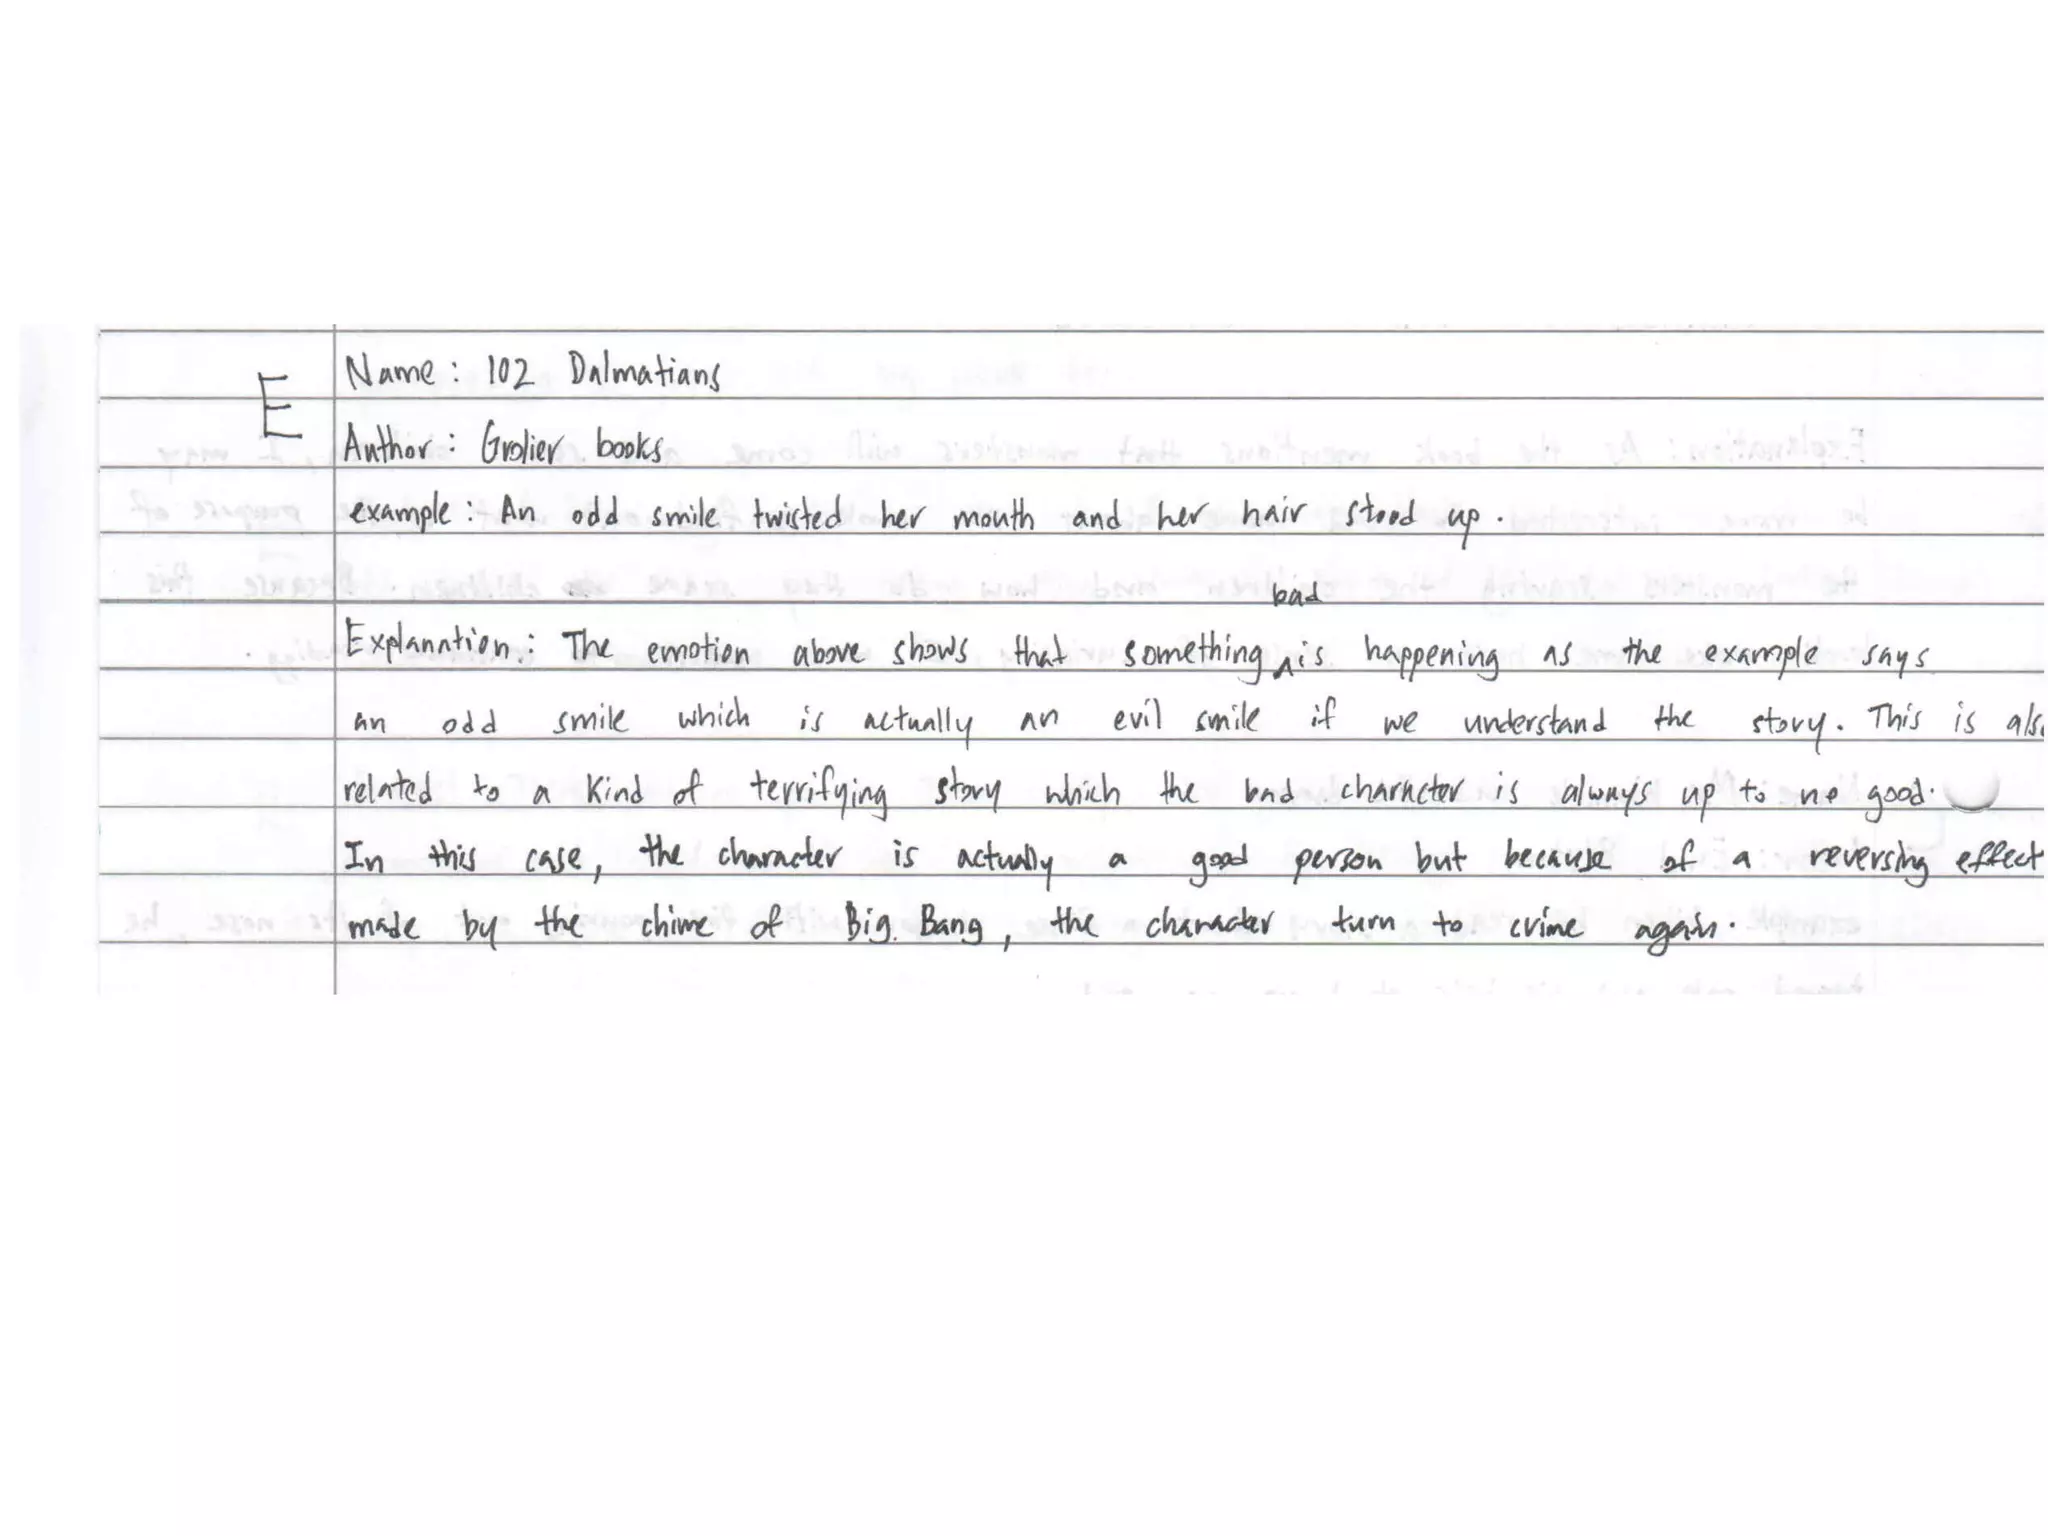 E
Name: 102 Dalmatians
Author: Grolier books
example: An odd smile twisted her mouth and her hair stood up.
bad
Explanation: The emotion above shows that something ^ is happening as the example says
an odd smile which is actually an evil smile if we understand the story. This is als
related to a kind of terrifying story which the bad character is always up to no good.
In this case, the character is actually a good person but because of a reversing effect
made by the chime of Big Bang, the character turn to crime again.